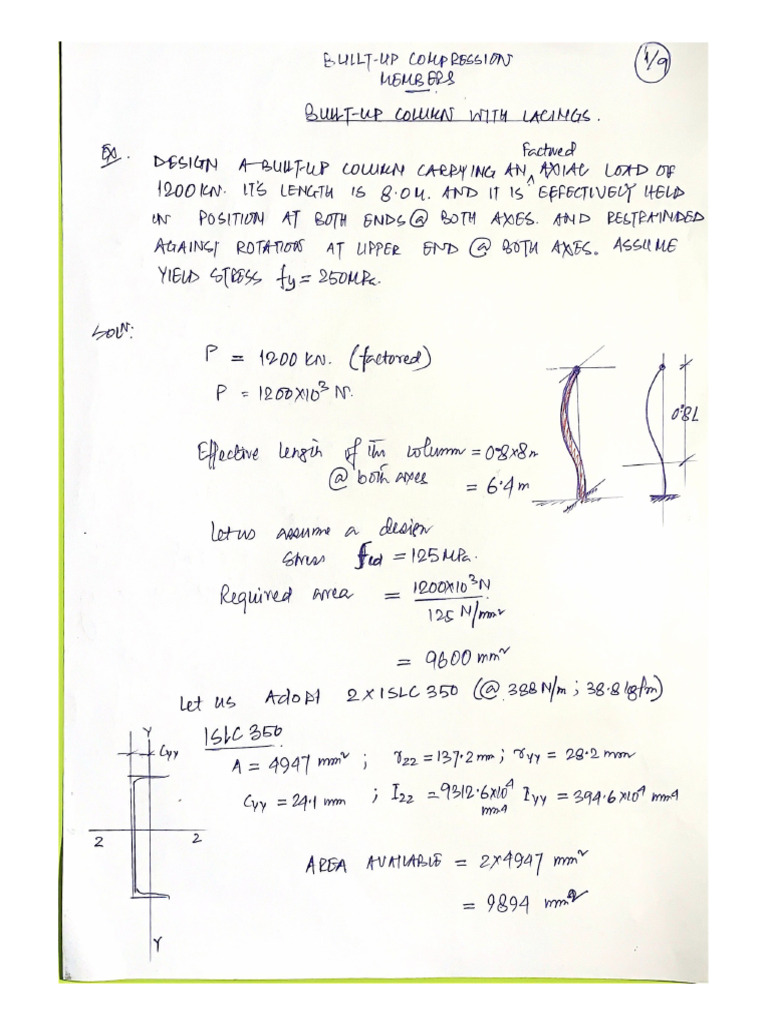 BUILT-UP COMPRESSION
MEMBERS
1/9
BUILT-UP COLUMN WITH LACINGS.
Ex.
Factored
DESIGN A BUILT-UP COLUMN CARRYING AN ^ AXIAL LOAD OF
1200 KN. IT'S LENGTH IS 8.0 M. AND IT IS EFFECTIVELY HELD
IN POSITION AT BOTH ENDS @ BOTH AXES. AND RESTRAINDED
AGAINST ROTATION AT UPPER END @ BOTH AXES. ASSUME
YIELD STRESS fy = 250MPa.
SOLN:
P = 1200 KN. (factored)
P = 1200×10³ N.
0.8L
Effective length of the column = 0.8×8m
@ both axes = 6.4 m
Let us assume a design
stress fcd = 125 MPa.
Required area = 1200×10³N
125 N/mm²
= 9600 mm²
Let us Adopt 2 X ISLC 350 (@ 388 N/m ; 38.8 kgf/m)
Y
Cyy
ISLC 350
A = 4947 mm² ; rzz = 137.2 mm ; ryy = 28.2 mm
Cyy = 24.1 mm ; Izz = 9312.6×10⁴ mm4 Iyy = 394.6×10⁴ mm4
Z Z
AREA AVAILABLE = 2×4947 mm²
= 9894 mm²
Y